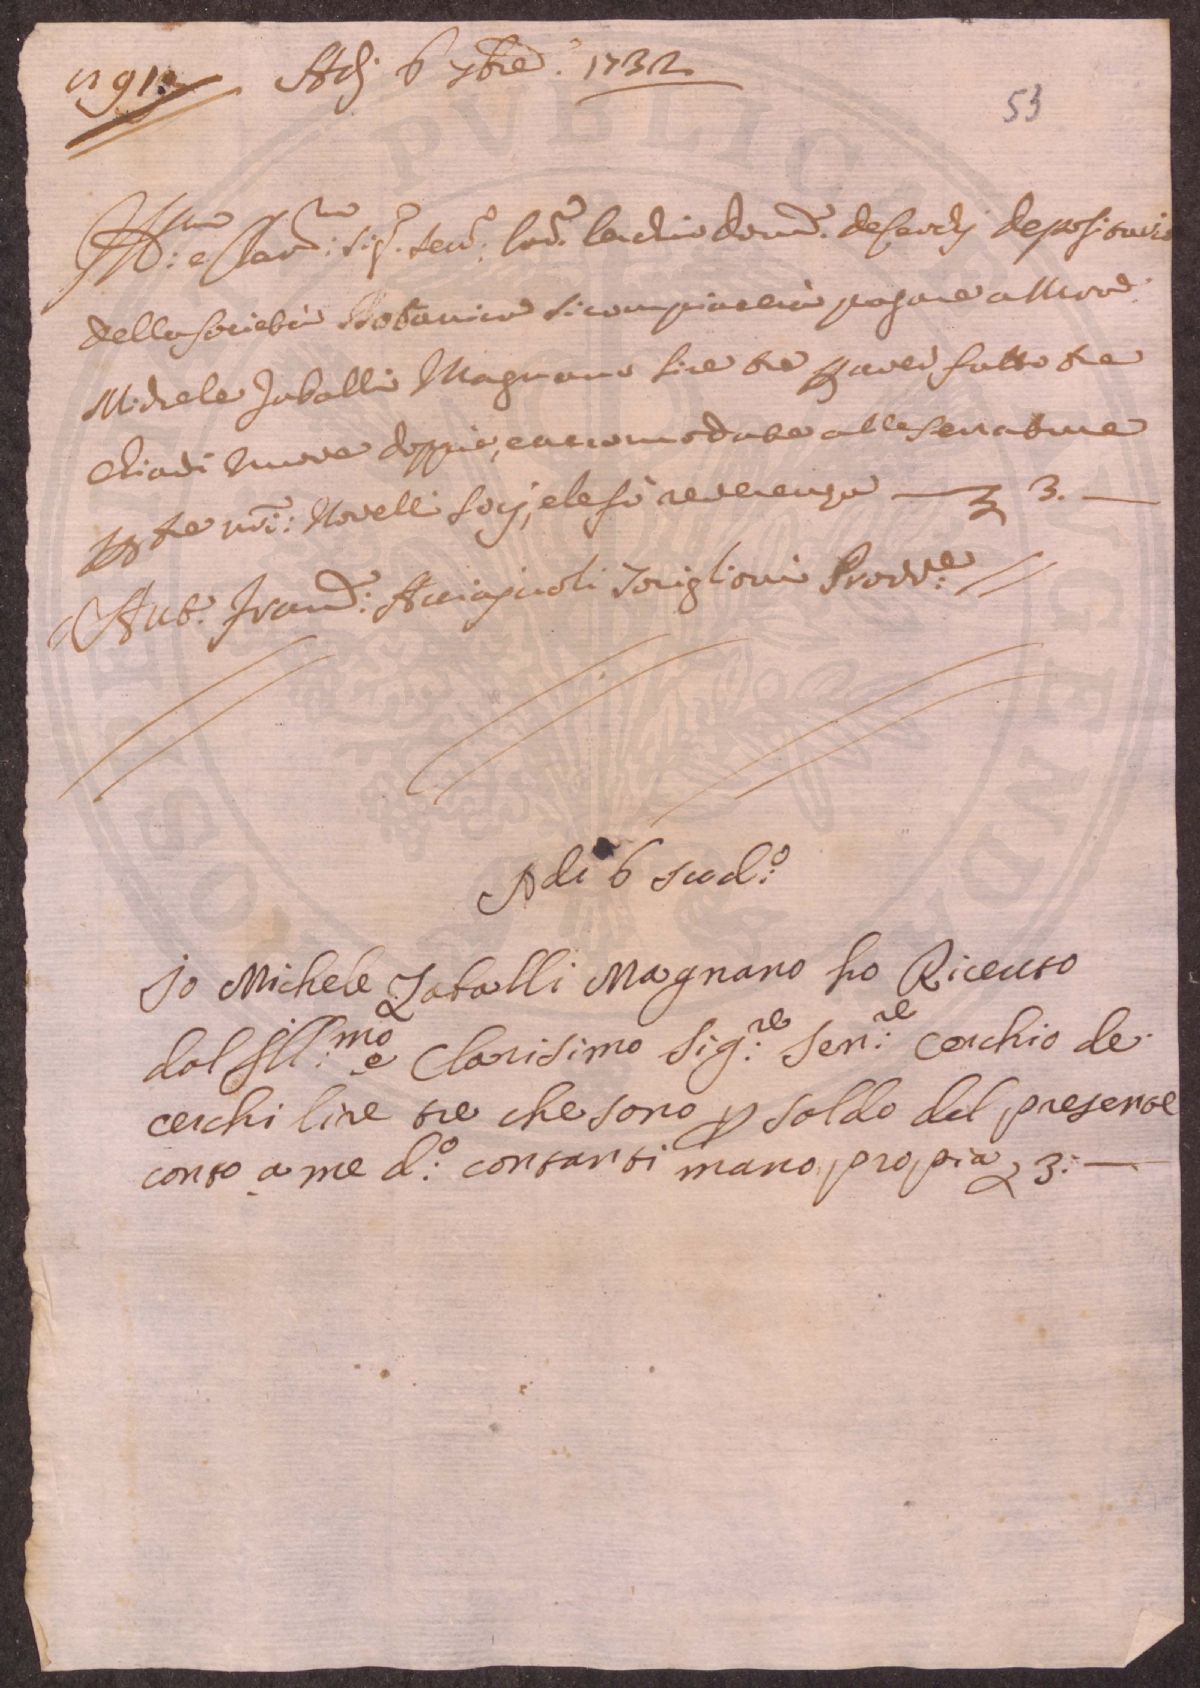 Adj 6 7bre. 1732
53
Ill.mo: e Clar.mo: Sig.e Sen.e: Cerchio de Cerchj depositario
della Società Botanica si compiacerà pagare a Mons.
Michele Zaballi Magnano lire tre per aver fatto tre
Chiavi nuove doppie, e accomodate alle serrature
per tre nri: Novelli Socij, e le fò reverenza — 3. —
Ant.o Franc.o: Acciajuoli Toriglioni Provv.re
Adi 6 sud.o:
Io Michele Zaballi Magnano ho Riceuto
dal Ill:mo e Clarisimo Sig:re Sen:re Cerchio de
cerchi lire tre che sono p saldo del presente
conto a me d:o contanti mano propia 3: —